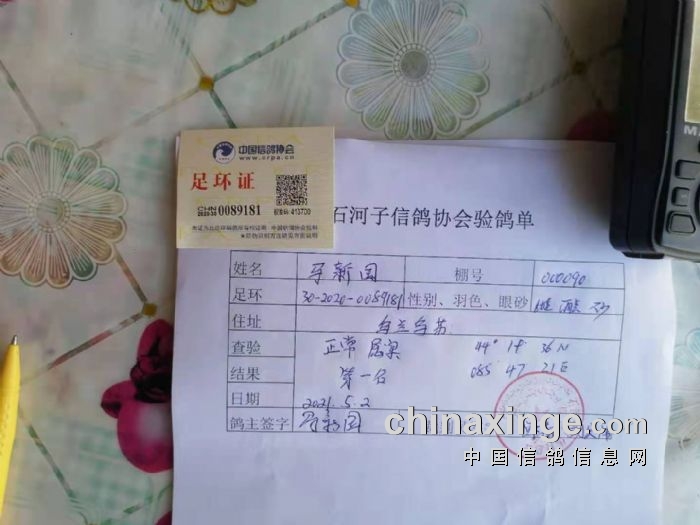 中国信鸽协会
www.crpa.cn
足环证
CHN
2020-30 0089181
413700
石河子信鸽协会验鸽单
姓名 新国 棚号 000090
足环 30-2020-0089181 性别、羽色、眼砂 雌 砂
住址 乌兰乌苏
查验 正常 44° 18 36 N
结果 第一名 085 47 21 E
日期 2021.5.2
鸽主签字 新国
MA
chinaxinge.com
中国信鸽信息网